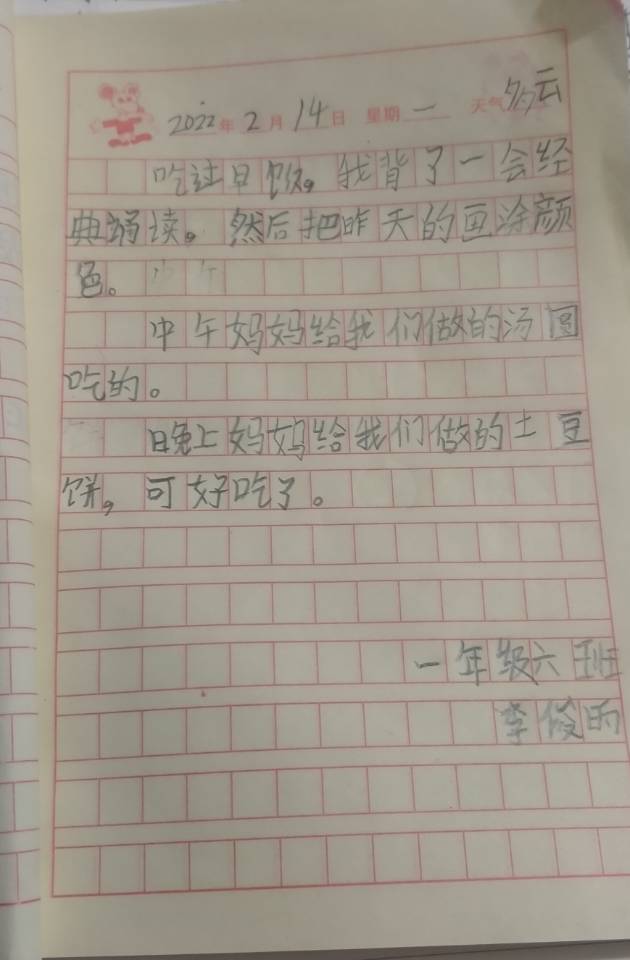 2022年2月14日 星期一 天气多云
吃过早饭，我背了一会经
典诵读。然后把昨天的画涂颜
色。
中午妈妈给我们做的汤圆
吃的。
晚上妈妈给我们做的土豆
饼，可好吃了。
一年级六班
李俊雨